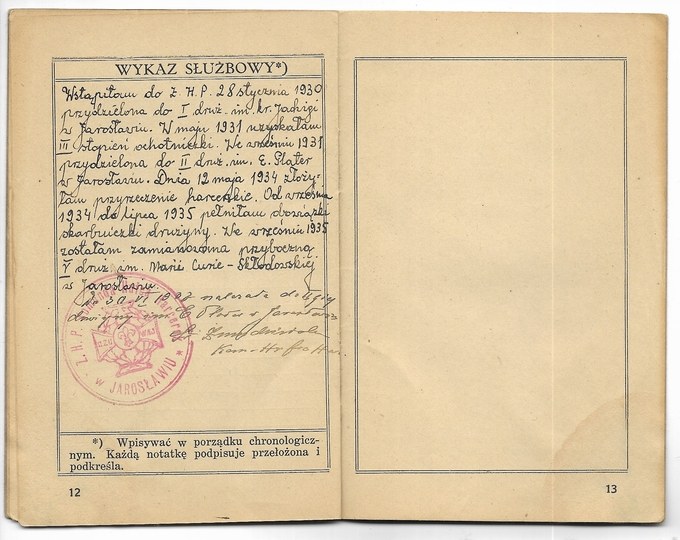 WYKAZ SŁUŻBOWY*)
Wstąpiłam do Z. H. P. 28 stycznia 1930
przydzielona do I druż. im. kr. Jadwigi
w Jarosławiu. W maju 1931 uzyskałam
III stopień ochotniczki. We wrześniu 1931
przydzielona do II druż. im. E. Plater
w Jarosławiu. Dnia 12 maja 1934 złoży-
łam przyrzeczenie harcerskie. Od września
1934 do lipca 1935 pełniłam obowiązki
skarbniczki drużyny. We wrześniu 1935
zostałam zamianowana przyboczną
V druż. im. Marie Curie-Skłodowskiej
w Jarosławiu.
Do 30.VI 1938 należała do
drużyny im. w
Z. H. P.
W JAROSŁAWIU
*) Wpisywać w porządku chronologicz-
nym. Każdą notatkę podpisuje przełożona i
podkreśla.
12
13